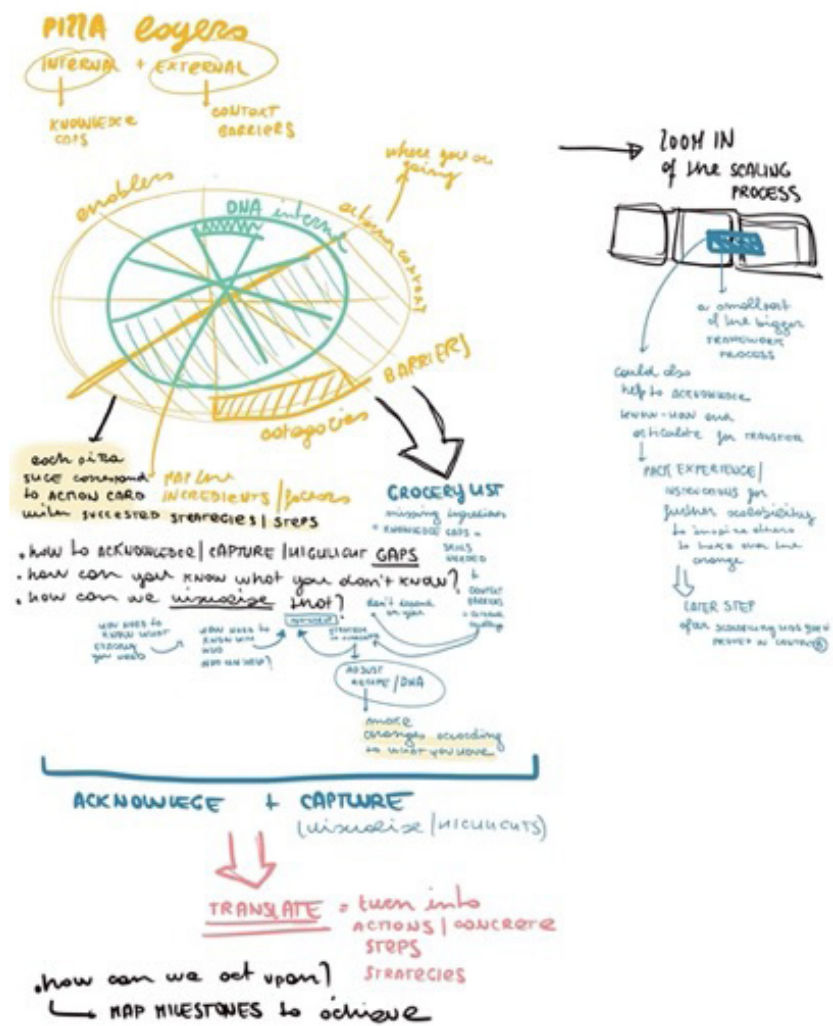 PIZZA layers
INTERNAL + EXTERNAL
KNOWLEDGE
GAPS
CONTEXT
BARRIERS
where you are
going
enablers
DNA internal
context
BARRIERS
categories
each pizza
SLICE correspond
to ACTION CARD
with SUGGESTED STRATEGIES / STEPS
MAP the
INGREDIENTS / factors
GROCERY LIST
missing ingredients
= KNOWLEDGE GAPS =
SKILLS
NEEDED
+
CONTEXT
BARRIERS
. how to ACKNOWLEDGE / CAPTURE / HIGHLIGHT GAPS
. how can you KNOW what you don't KNOW?
. how can we visualise that?
don't depend
on you
YOU NEED TO
KNOW WHAT
you NEED
YOU NEED TO
KNOW WHO
CAN HELP?
ADJUST
RECIPE / DNA
make
changes according
to what you have
ACKNOWLEGE + CAPTURE
(visualise / HIGHLIGHTS)
TRANSLATE = turn into
ACTIONS / CONCRETE
STEPS
STRATEGIES
. how can we act upon?
MAP MILESTONES to achieve
ZOOM IN
of the SCALING
PROCESS
a small part
of the bigger
FRAMEWORK
PROCESS
could also
help to ACKNOWLEDGE
KNOW-HOW and
articulate for TRANSFER
PACK EXPERIENCE /
INSTRUCTIONS for
further scalability
to inspire others
to make the
change
LATER STEP